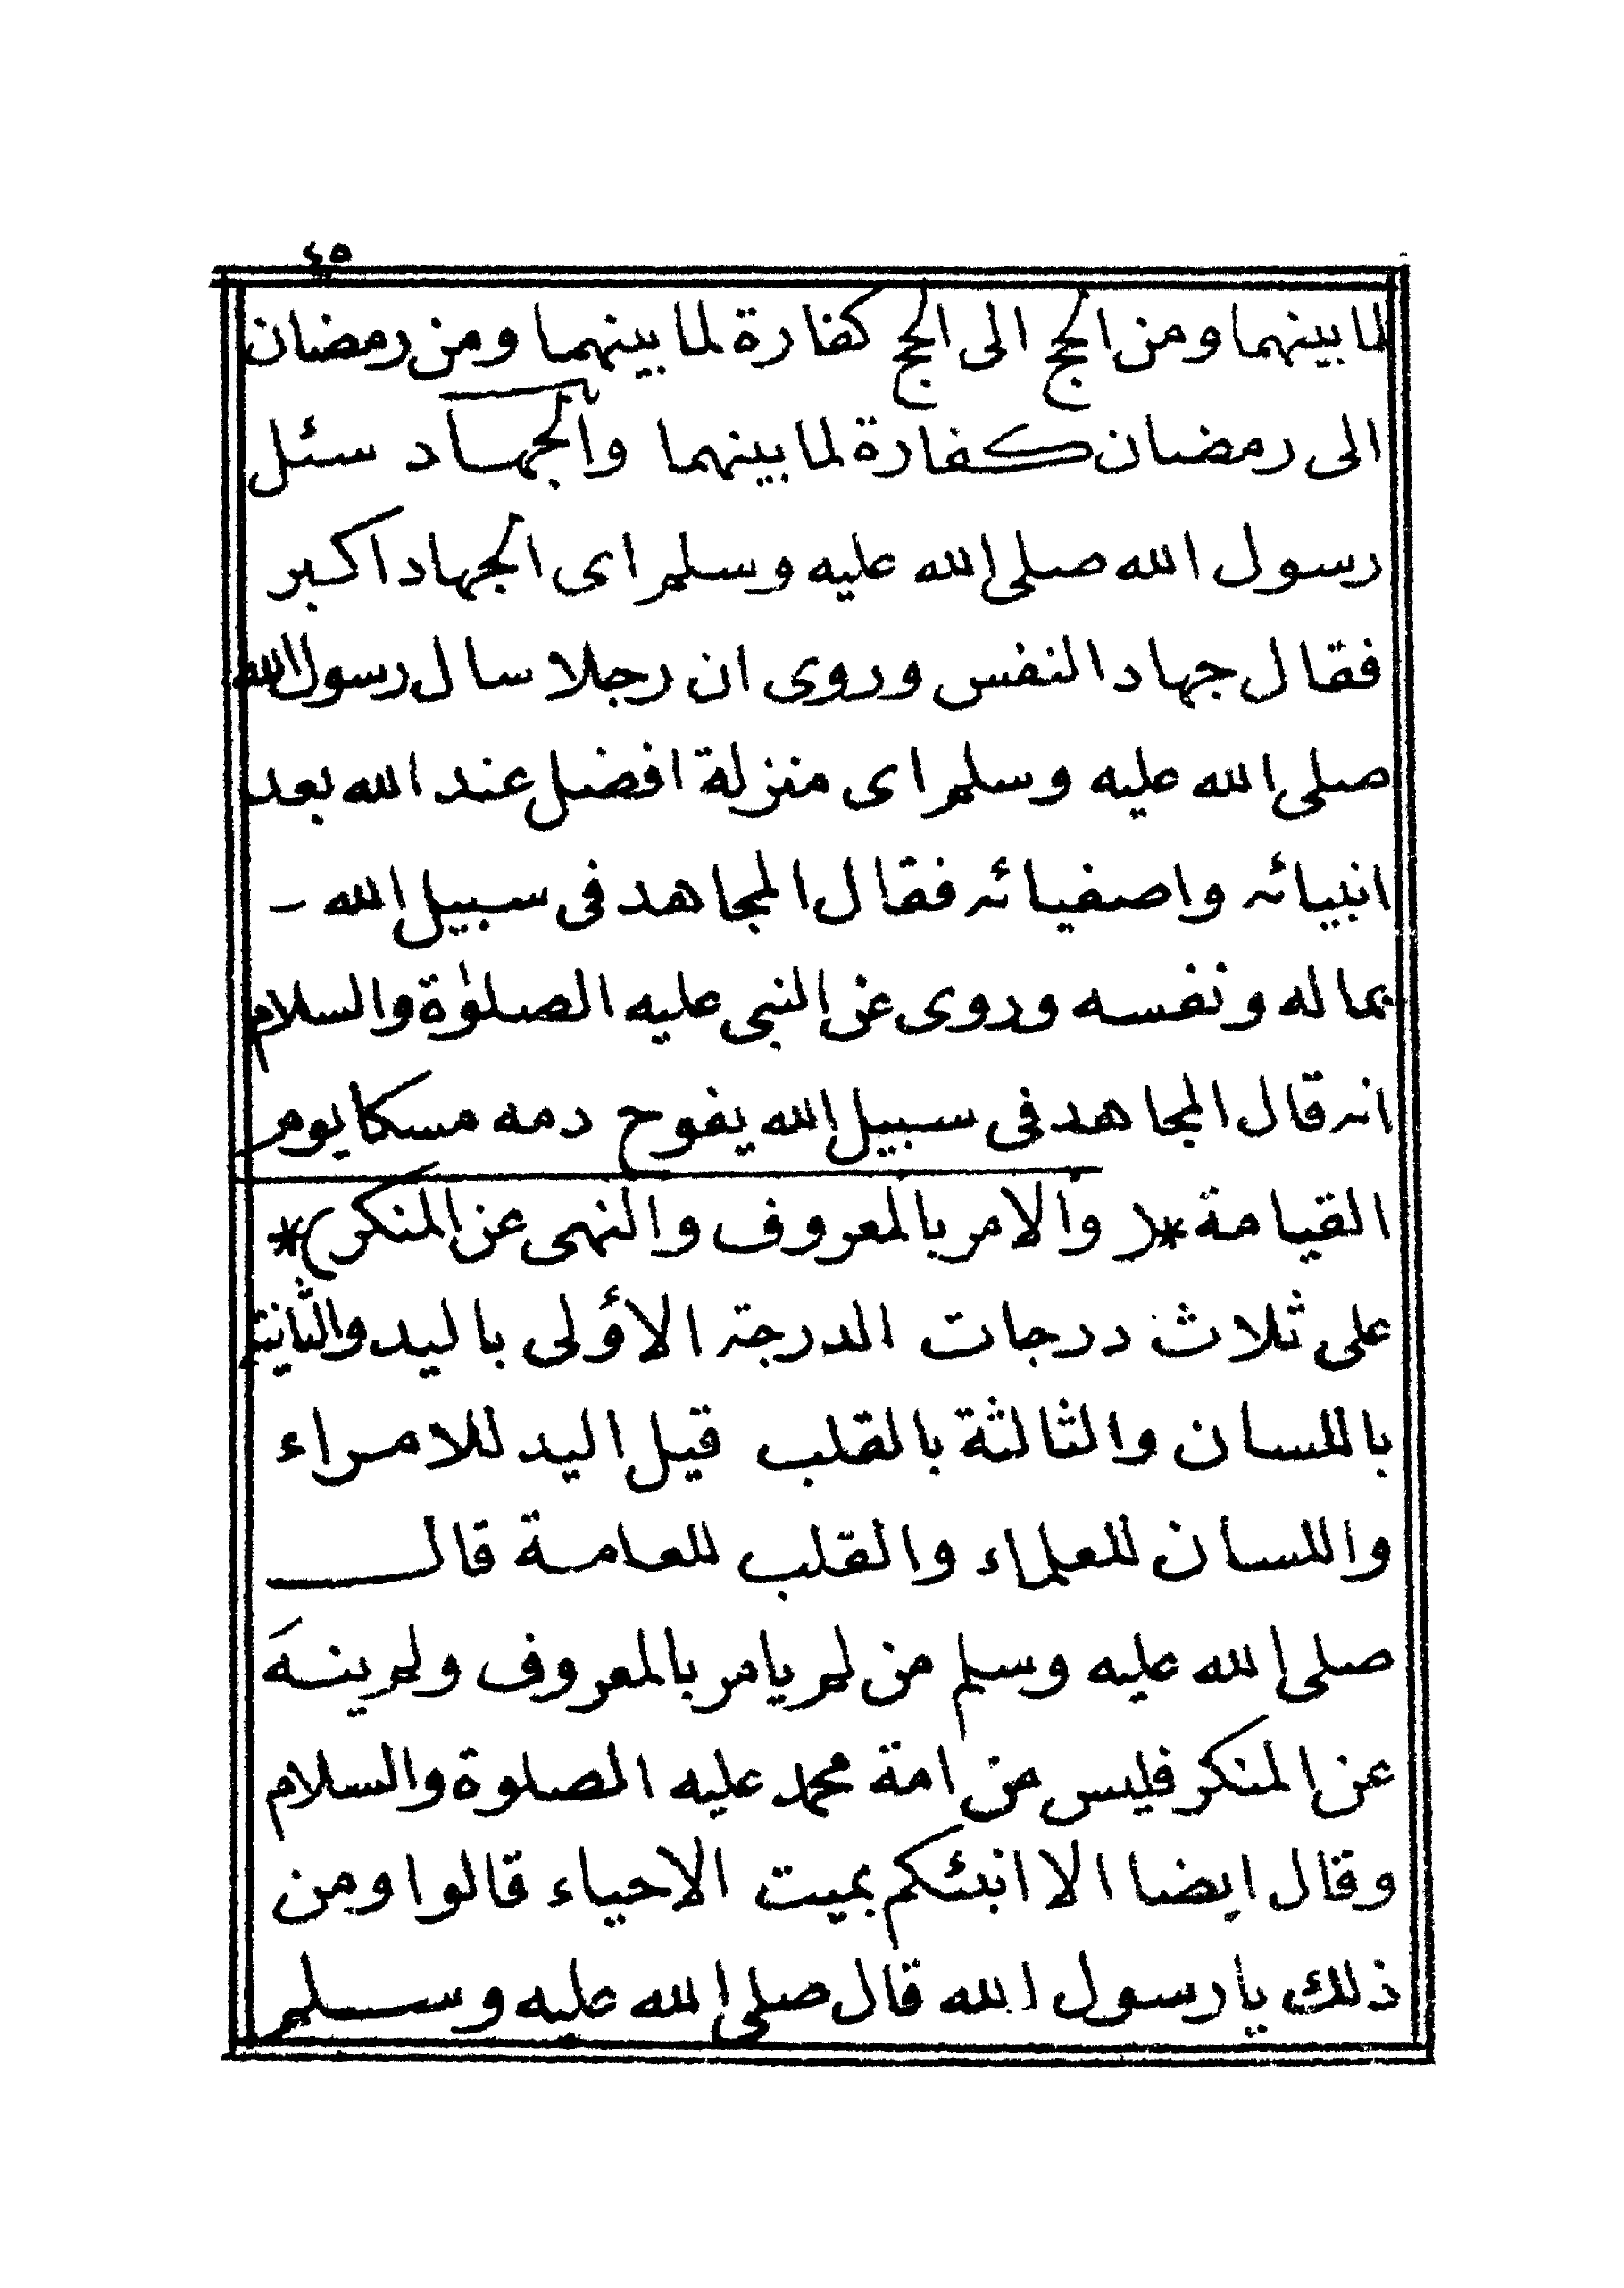 ٤٥
لما بينهما ومن الحج الى الحج كفارة لما بينهما ومن رمضان
الى رمضان كفارة لما بينهما والجهاد سئل
رسول الله صلى الله عليه وسلم اى الجهاد اكبر
فقال جهاد النفس وروى ان رجلا سال رسول الله
صلى الله عليه وسلم اى منزلة افضل عند الله بعد
انبيائه واصفيائه فقال المجاهد فى سبيل الله -
بماله ونفسه وروى عن النبى عليه الصلوٰة والسلام
انه قال المجاهد فى سبيل الله يفوح دمه مسكا يوم
القيامة *( والامر بالمعروف والنهى عن المنكر )*
على ثلاث درجات الدرجة الأولى باليد والثانية
باللسان والثالثة بالقلب قيل اليد للامراء
واللسان للعلماء والقلب للعامة قال
صلى الله عليه وسلم من لم يامر بالمعروف ولم ينهَ
عن المنكر فليس من امة محمد عليه الصلوة والسلام
وقال ايضا الا انبئكم بميت الاحياء قالوا ومن
ذلك يا رسول الله قال صلى الله عليه وسلم